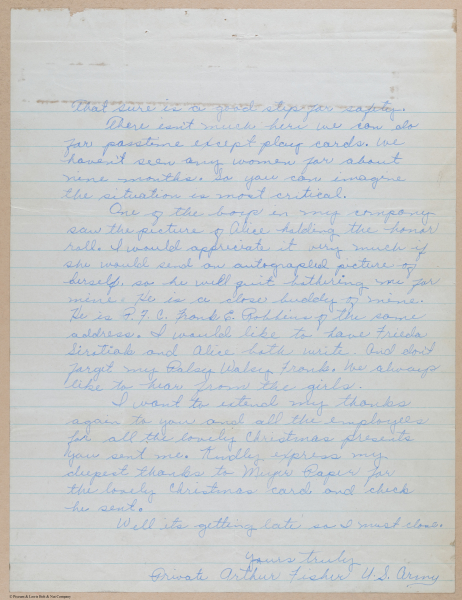 That sure is a good step for safety.
There isn't much here we can do
for passtime except play cards. We
haven't seen any women for about
nine months. So you can imagine
the situation is most critical.
One of the boys in my company
saw the picture of Alice holding the honor
roll. I would appreciate it very much if
she would send an autographed picture of
herself, so he will quit bothering me for
mine. He is a close buddy of mine.
He is P.F.C. Frank E. Robbins of the same
address. I would like to have Freeda
and Alice both write. And don't
forget my Walsey Frank. We always
like to hear from the girls.
I want to extend my thanks
again to you and all the employees
for all the lovely Christmas presents
you sent me. Kindly express my
deepest thanks to Meyer for
the lovely Christmas card and check
he sent.
Well its getting late so I must close.
Yours truly
Private Arthur Fisher U.S. Army